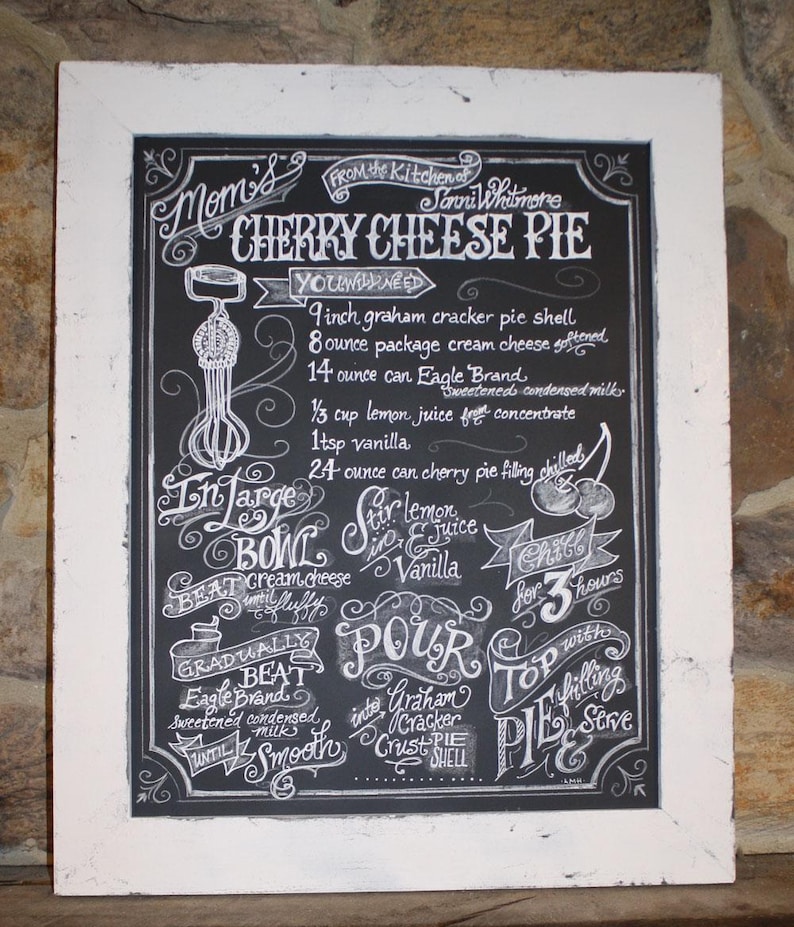 Mom's
FROM the KitchEN of
Sonni Whitmore
CHERRY CHEESE PIE
YOU WILL NEED
9 inch graham cracker pie shell
8 ounce package cream cheese softened
14 ounce can Eagle Brand
sweetened condensed milk.
1/3 cup lemon juice from concentrate
1tsp vanilla
24 ounce can cherry pie filling chilled
In Large
BOWL
BEAT cream cheese
until fluffy
GRADUALLY
BEAT
Eagle Brand
sweetened condensed
milk
UNTIL Smooth
Stir lemon
in juice
& Vanilla
POUR
into Graham
Cracker
Crust PIE
SHELL
Chill
for 3 hours
TOP with
PIE filling
& Serve
LMH